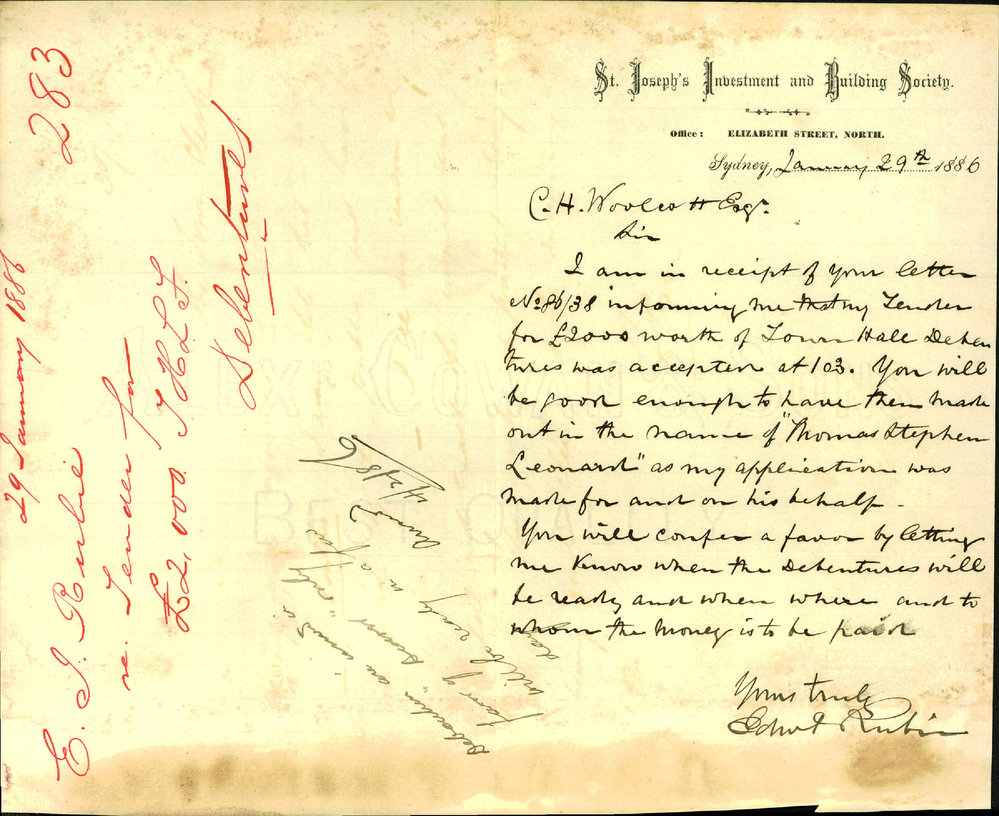 St. Joseph's Investment and Building Society.
Office: ELIZABETH STREET, NORTH.
Sydney, January 29th 1886
C. H. Woolcott Esqr.
Sir
I am in receipt of your letter
No 86/38 informing me that my Tender
for £2000 worth of Town Hall Deben
tures was accepted at 103. You will
be good enough to have them made
out in the name of "Thomas Stephen
Leonard" as my application was
made for and on his behalf.
You will confer a favor by letting
me know when the Debentures will
be ready and when where and to
whom the money is to be paid
Yours truly
Edwd Rubie
283
29 January 1886
E. J. Rubie
re. Tender for
£2,000 T H L F
Debentures
Debentures are issued in
favor of "Bearer" only
will be ready in a few
days
4/2/86
BEST QUALITY